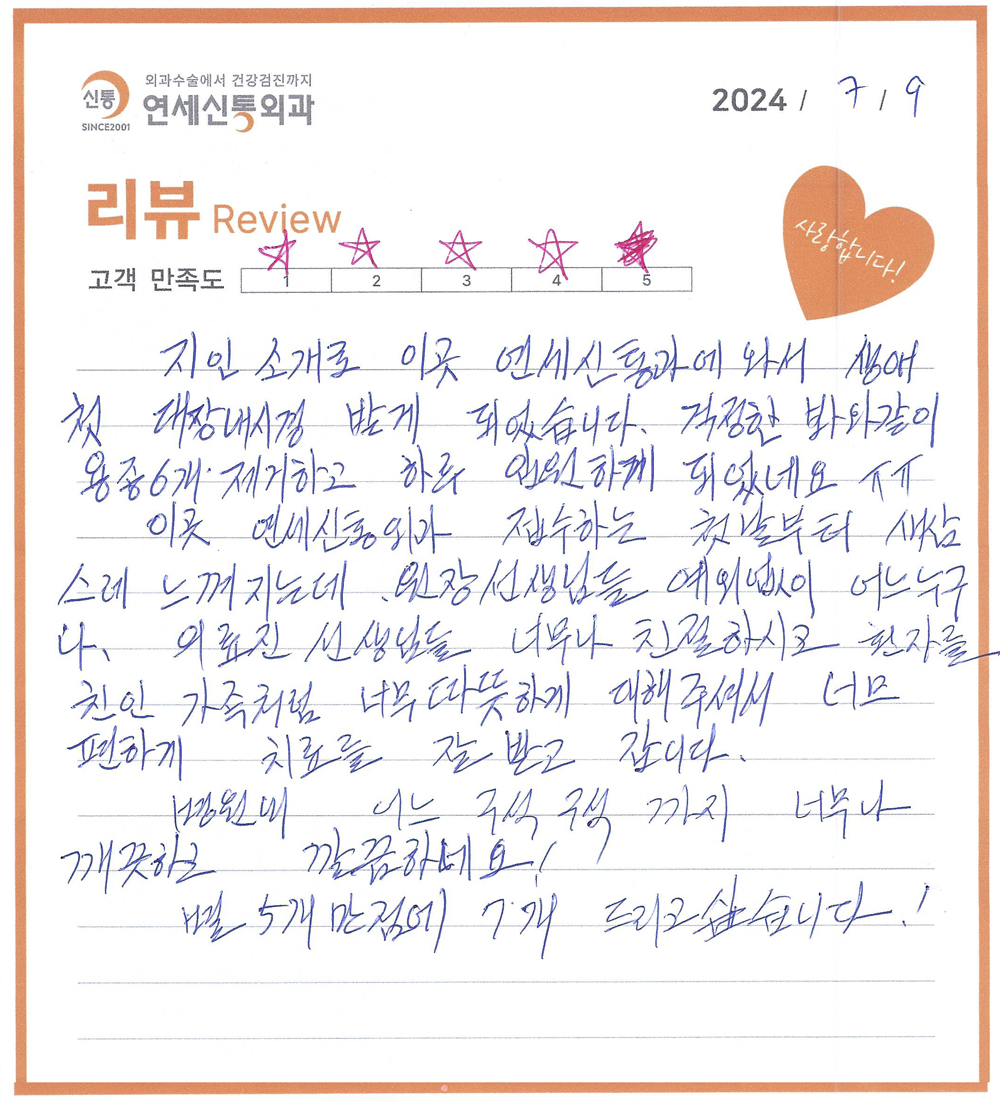 외과수술에서 건강검진까지
신통 연세신통외과
SINCE2001
2024 / 7 / 9
리뷰 Review
사랑합니다!
고객 만족도 1 2 3 4 5
지인 소개로 이곳 연세신통과에 와서 생애
첫 대장내시경 받게 되었습니다. 걱정한 봐와같이
용종6개 제거하고 하루 입원하게 되었네요 ㅠㅠ
이곳 연세신통외과 접수하는 첫날부터 새삼
스레 느껴지는데 원장선생님들 예외없이 어느누구
나, 의료진 선생님들 너무나 친절하시고 환자를
친인 가족처럼 너무따뜻하게 대해주셔서 너므
편하게 치료를 잘 받고 갑니다.
병원내 어느 구석 구석 까지 너무나
깨끗하고 깔끔하네요!
별 5개 만점에 7개 드리고 싶습니다!